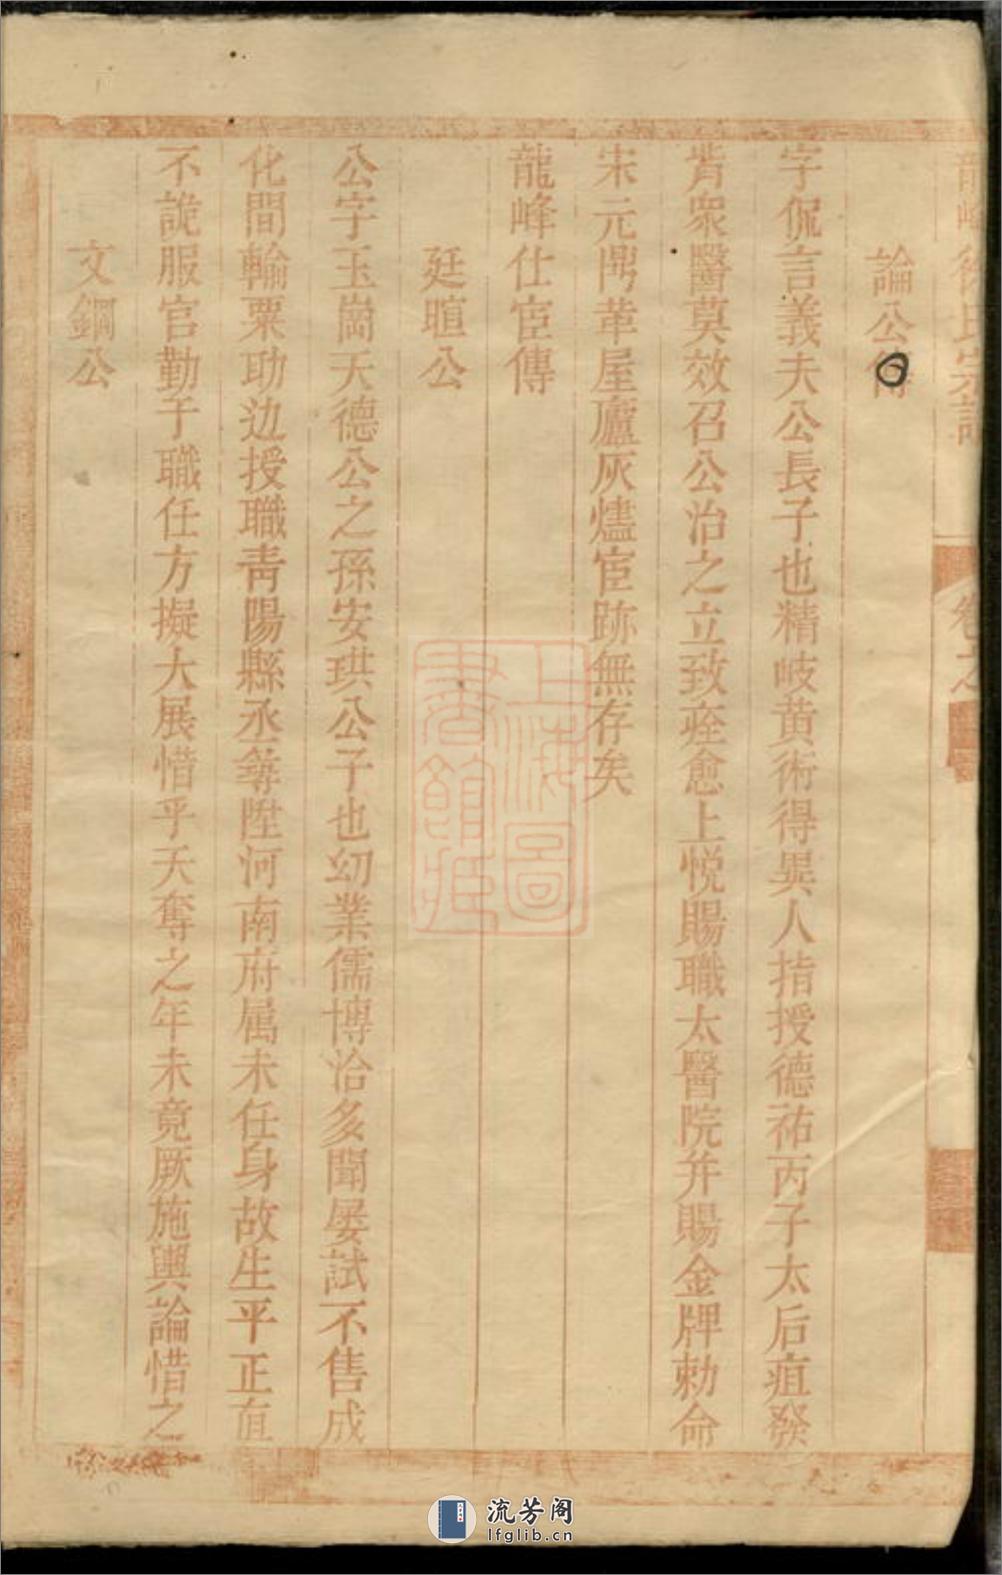 龍峰徐氏宗譜
卷之
論公傳
字侃言義夫公長子也精岐黄術得異人指授德祐丙子太后疽發
背衆醫莫效召公治之立致痊愈上悦賜職太醫院并賜金牌勅命
宋元鬧革屋廬灰燼宦跡無存矣
龍峰仕宦傳
廷暄公
公字玉崗天德公之孫安珙公子也幼業儒博洽多聞屡試不售成
化間輸粟功边授職青陽縣丞尋陞河南府属未任身故生平正直
不詭服官勤于職任方擬大展惜乎天奪之年未竟厥施輿論惜之
文鋼公
上海圖書館藏
流芳阁
lfglib.cn